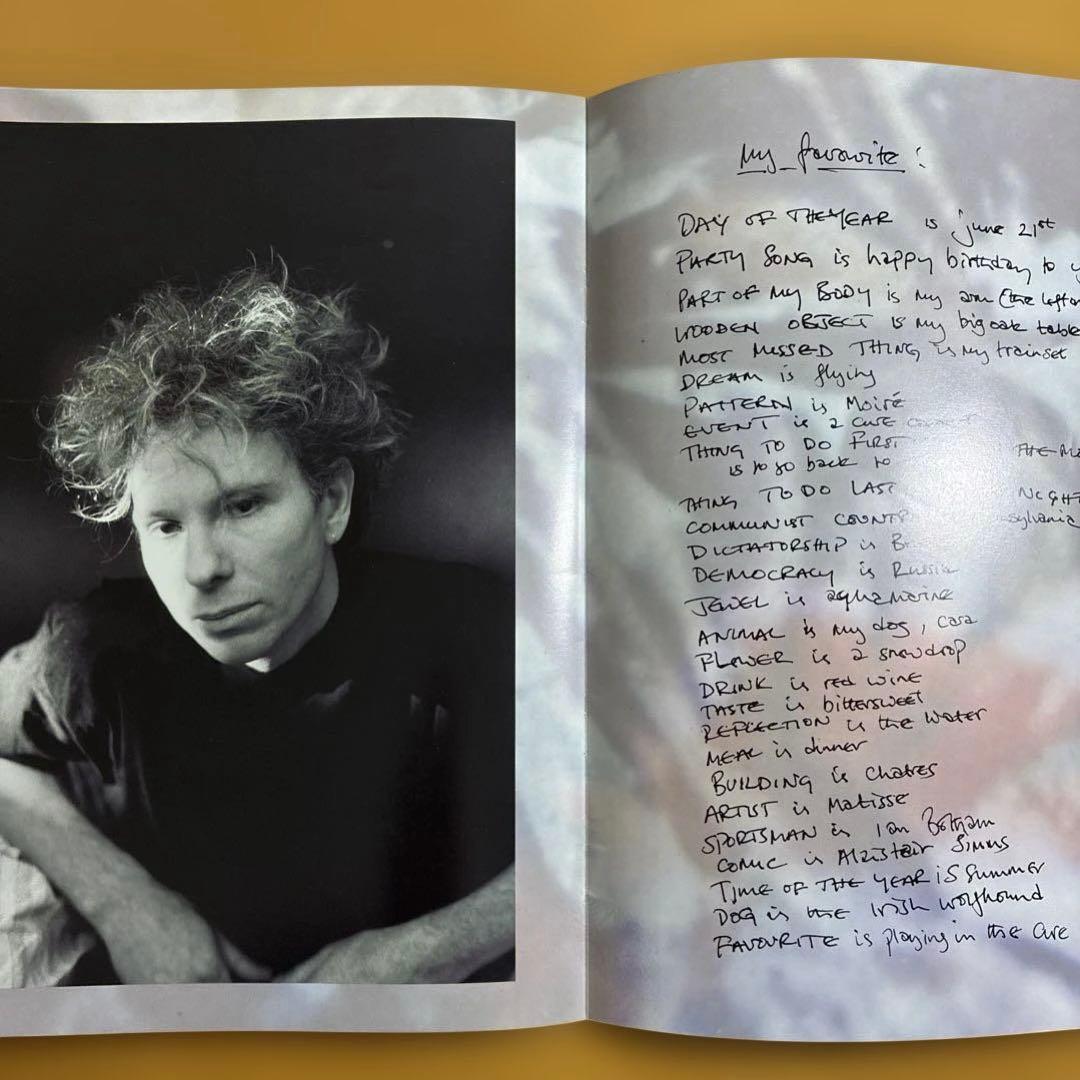 My favourite :
DAY OF THE YEAR is june 21st
PARTY SONG is happy birthday to
PART OF MY BODY is my arm (the left
WOODEN OBJECT is my big oak table
MOST MISSED THING is my trainset
DREAM is flying
PATTERN is Moiré
EVENT is a cure
THING TO DO FIRST THE
is to go back to
THING TO DO LAST NIGHT
COMMUNIST
DICTATORSHIP is
DEMOCRACY is Russia
JEWEL is aquamarine
ANIMAL is my dog, casa
FLOWER is a snowdrop
DRINK is red wine
TASTE is bittersweet
REFLECTION is the water
MEAL is dinner
BUILDING is Chatres
ARTIST is Matisse
SPORTSMAN is Ian Botham
COMIC is Alaistair Simms
TIME OF THE YEAR is Summer
DOG is the Irish wolfhound
FAVOURITE is playing in the Cure